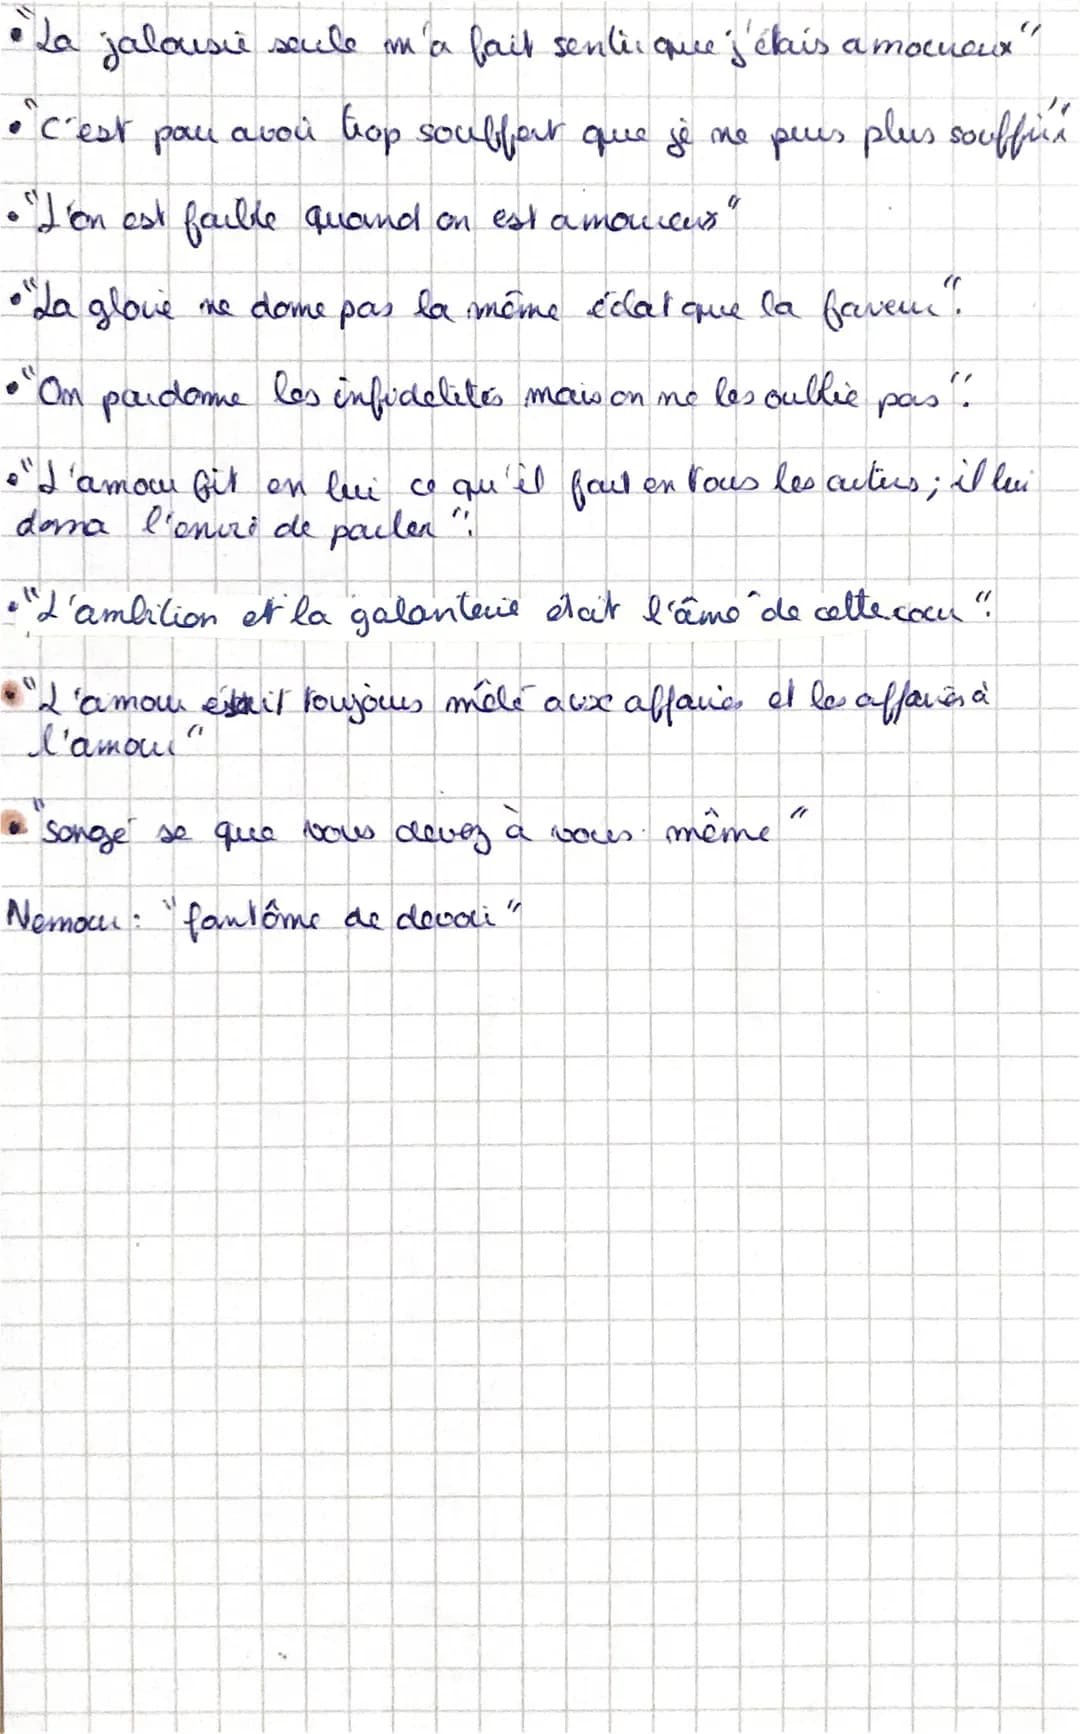 • "La jalousie seule m'a fait sentir que j'étais amoureux"
• "C'est pour avoir trop souffert que je ne puis plus souffrir"
• "L'on est faible quand on est amoureux"
• "La gloire ne donne pas la même éclat que la faveur".
• "On pardonne les infidelités mais on ne les oublie pas".
• "L'amour fit en lui ce qu'il fait en tous les autres ; il lui
donna l'envi de parler".
• "L'ambition et la galanterie était l'âme de cette cour".
• "L'amour était toujours mêlé aux affaires et les affaires à
l'amour"
• "songé se que vous devez à vous même"
Nemour : "fantôme de devoir"